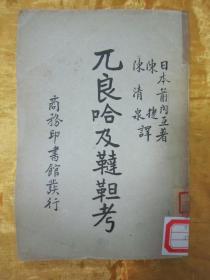 日本箭內亙著
陳捷
陳清泉譯
兀良哈及韃靼考
商務印書館發行